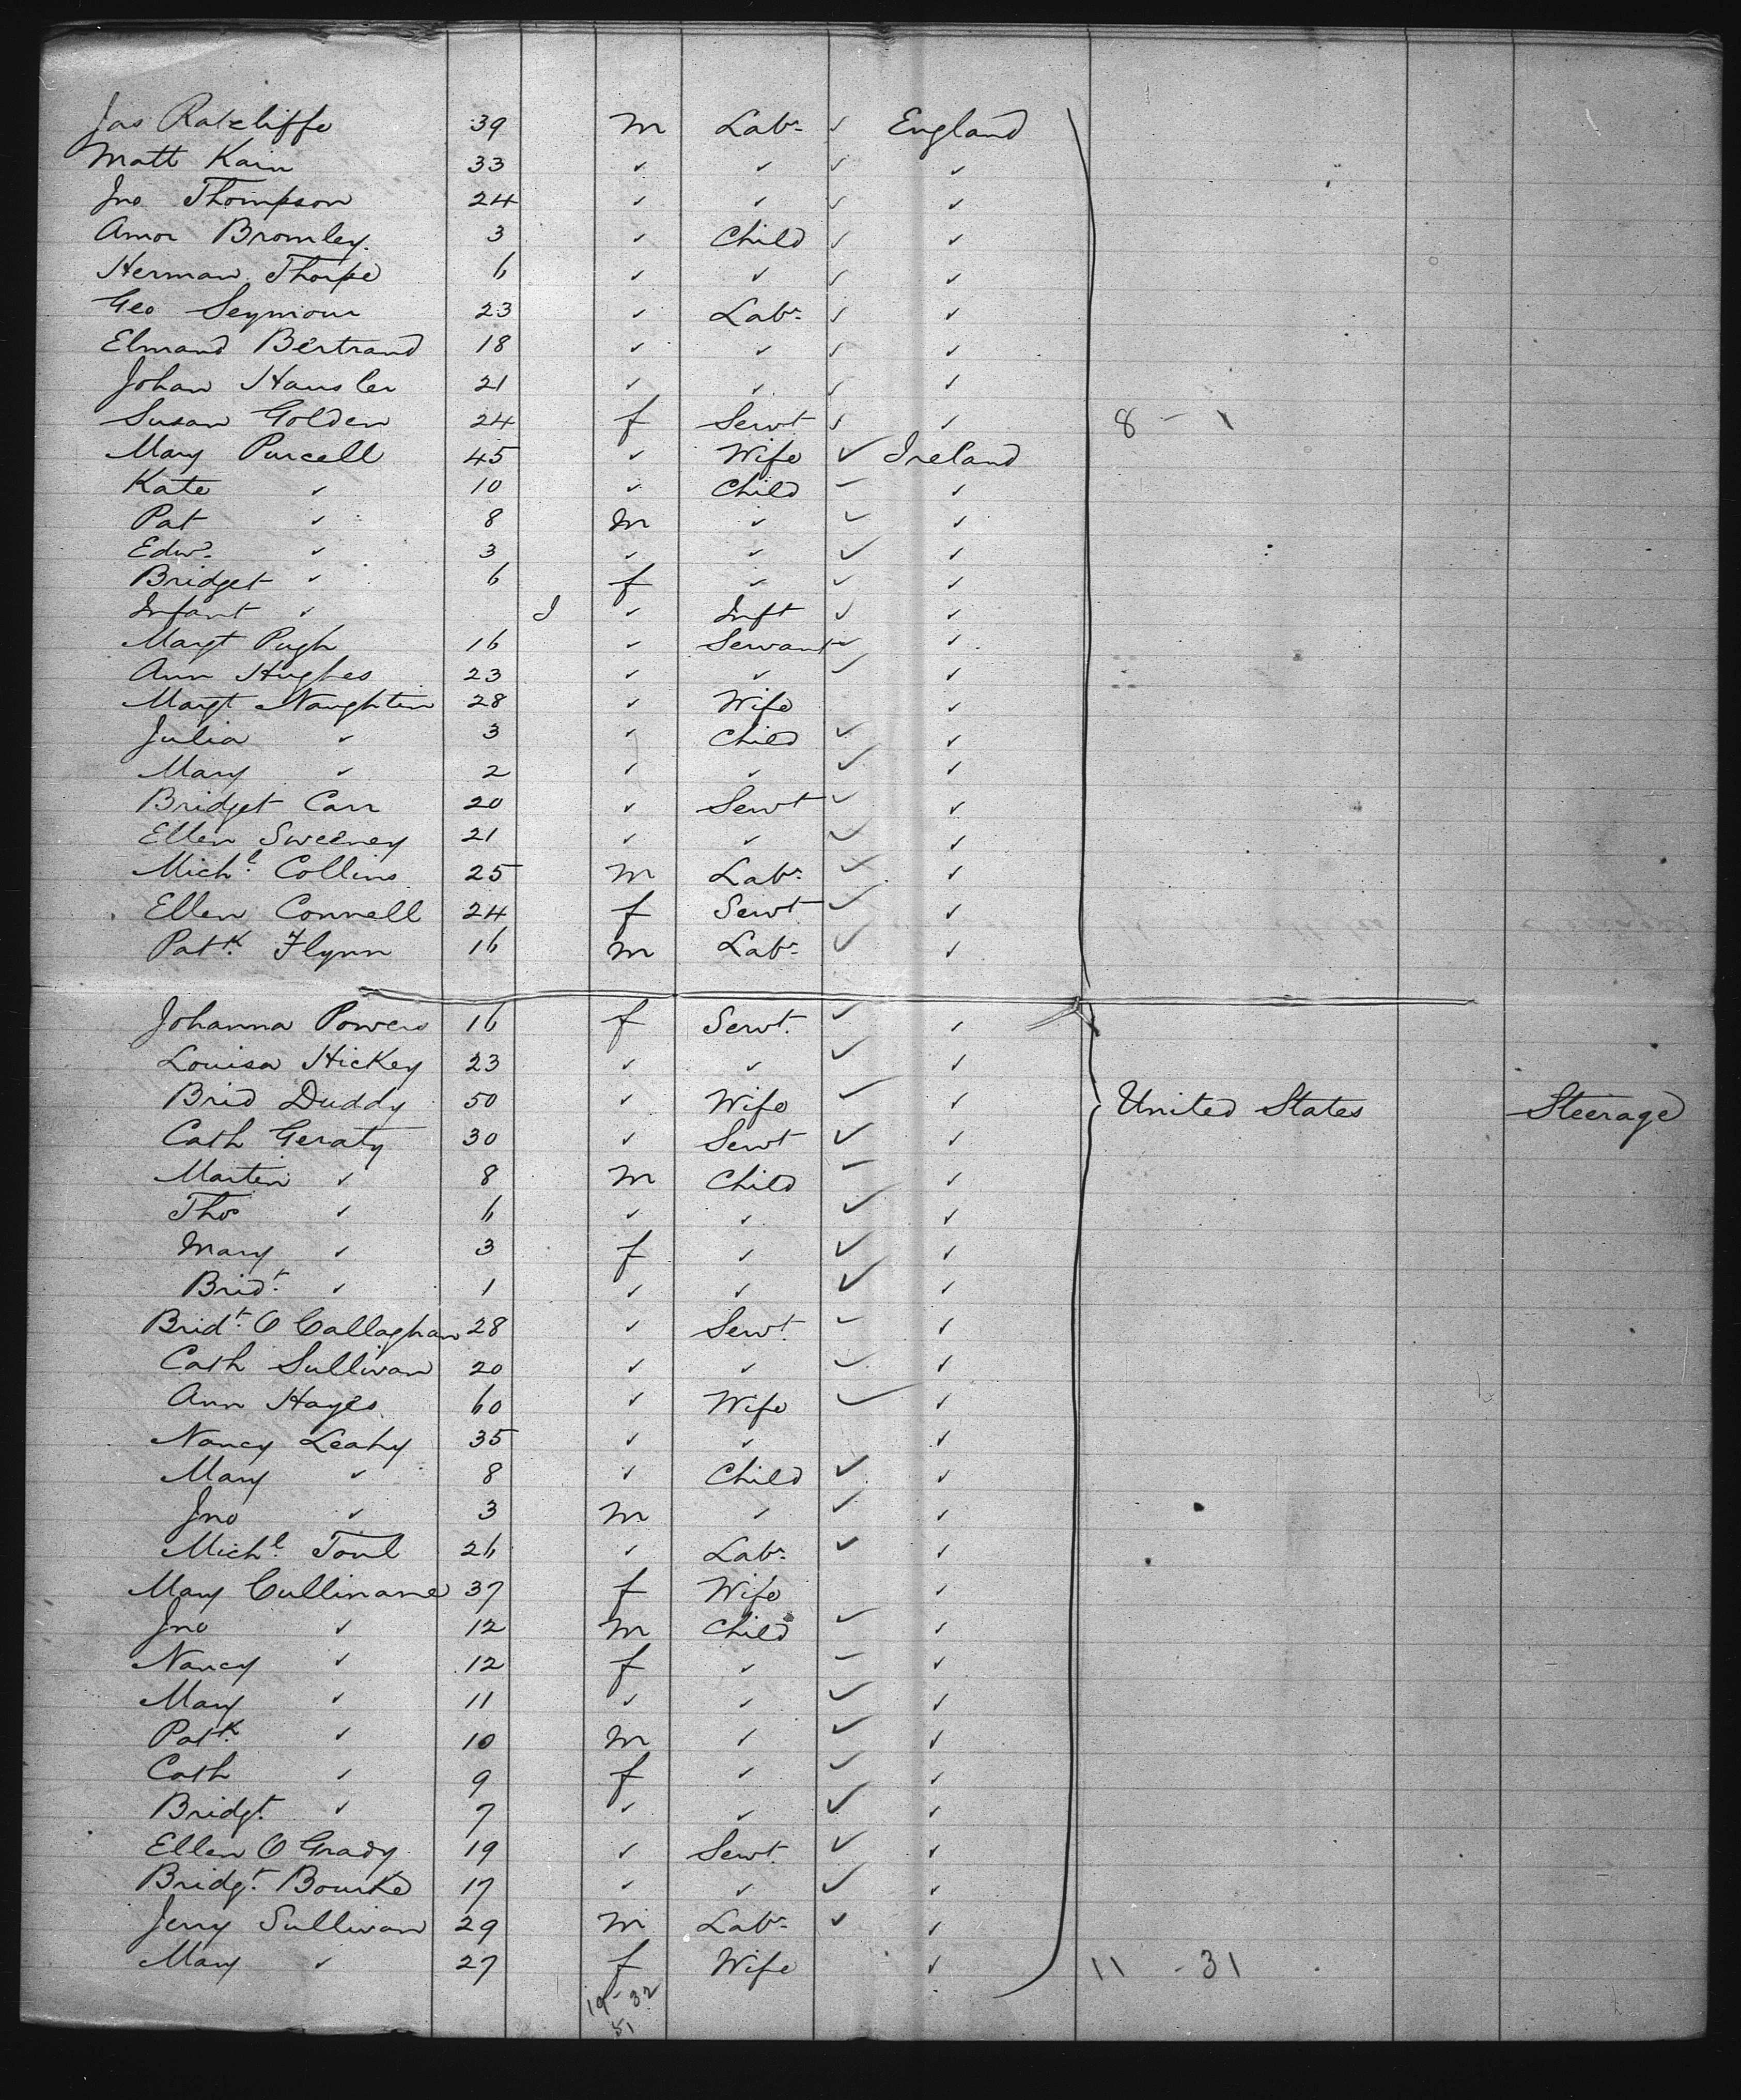 Jas Ratcliffe 39 M Labr ✓ England
Matt Kain 33 ✓ ✓ ✓ ✓
Jno Thompson 24 ✓ ✓ ✓ ✓
Amor Bromley 3 ✓ Child ✓ ✓
Herman Thorpe 6 ✓ ✓ ✓ ✓
Geo Seymour 23 ✓ Labr ✓ ✓
Elmand Bertrand 18 ✓ ✓ ✓ ✓
Johan Hausler 21 ✓ ✓ ✓ ✓
Susan Golden 24 f Servt ✓ ✓ 8 - 1
Mary Purcell 45 ✓ Wife ✓ Ireland
Kate ✓ 10 ✓ Child ✓ ✓
Pat ✓ 8 M ✓ ✓ ✓
Edwd ✓ 3 ✓ ✓ ✓ ✓
Bridget ✓ 6 f ✓ ✓ ✓
Infant ✓ I ✓ Inft ✓ ✓
Margt Pugh 16 ✓ Servant ✓ ✓
Ann Hughes 23 ✓ ✓ ✓ ✓
Margt Naughtin 28 ✓ Wife ✓
Julia ✓ 3 ✓ Child ✓ ✓
Mary ✓ 2 ✓ ✓ ✓ ✓
Bridget Carr 20 ✓ Servt ✓ ✓
Ellen Sweeney 21 ✓ ✓ ✓ ✓
Michl Collins 25 M Labr ✓ ✓
Ellen Connell 24 f Servt ✓ ✓
Patk Flynn 16 M Labr ✓ ✓
Johanna Powers 16 f Servt. ✓ ✓
Louisa Hickey 23 ✓ ✓ ✓ ✓
Brid Duddy 50 ✓ Wife ✓ ✓ United States Steerage
Cath Geraty 30 ✓ Servt ✓ ✓
Martin ✓ 8 M Child ✓ ✓
Thos ✓ 6 ✓ ✓ ✓ ✓
Mary ✓ 3 f ✓ ✓ ✓
Bridt ✓ 1 ✓ ✓ ✓ ✓
Bridt O Callaghan 28 ✓ Servt. ✓ ✓
Cath Sullivan 20 ✓ ✓ ✓ ✓
Ann Hayes 60 ✓ Wife ✓ ✓
Nancy Leahy 35 ✓ ✓ ✓
Mary ✓ 8 ✓ Child ✓ ✓
Jno ✓ 3 M ✓ ✓ ✓
Michl Toul 26 ✓ Labr ✓ ✓
Mary Cullinane 37 f Wife ✓
Jno ✓ 12 M Child ✓ ✓
Nancy ✓ 12 f ✓ ✓ ✓
Mary ✓ 11 ✓ ✓ ✓ ✓
Patk ✓ 10 M ✓ ✓ ✓
Cath ✓ 9 f ✓ ✓ ✓
Bridgt. ✓ 7 ✓ ✓ ✓ ✓
Ellen O Grady 19 ✓ Servt. ✓ ✓
Bridgt. Bourke 17 ✓ ✓ ✓ ✓
Jerry Sullivan 29 M Labr ✓ ✓
Mary ✓ 27 f Wife ✓ 11 - 31
19 - 32
51